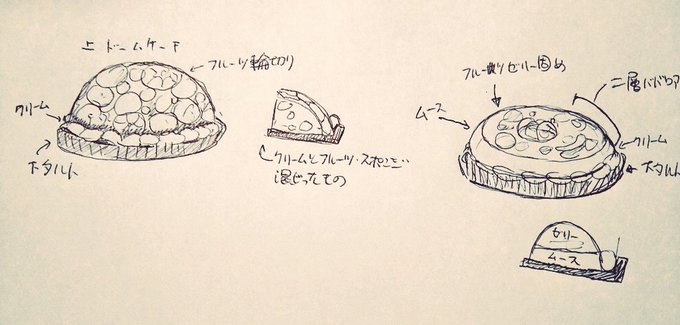 上 ドームケーキ
フルーツ輪切り
クリーム
下 タルト
クリームとフルーツ・スポンジ
混ざったもの
フルーツゼリー固め
ムース
クリーム
下 タルト
ゼリー
ムース